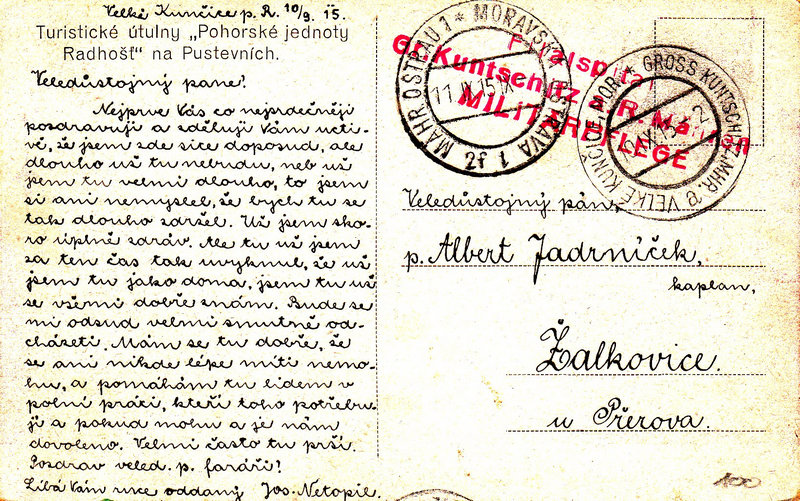 Velké Kunčice p. R. 10/9. 15.
Turistické útulny „Pohorské jednoty
Radhošť" na Pustevních.
Veledůstojný pane!
Nejprve Vás co nejsrdečněji
pozdravuji a sděluji Vám ucti-
vě, že jsem zde sice doposud, ale
dlouho už tu nebudu, neb už
jsem tu velmi dlouho, to jsem
si ani nemyslel, že bych tu se
tak dlouho zdržel. Už jsem sko-
ro úplně zdráv. Ale tu už jsem
za ten čas tak uvyknul, že už
jsem tu jako doma, jsem tu už
se všěmi dobře znám. Bude se
mi odsud velmi smutně od-
cházeti. Mám se tu dobře, že
se ani nikde lépe míti nemo-
hu, a pomáhám tu lidem v
polní práci, kteří toho potřebu-
jí a pokud mohu a je nám
dovoleno. Velmi často tu prší.
Pozdrav veled. p. faráři!
Líbá Vám ruce oddaný Jos. Netopil.
MÄHR. OSTRAU 1 * MORAVSKÁ OSTRAVA 1
11 IX 15 IX
2f
Filialspital
Gr. Kuntschitz
MILITÄRPFLEGE
GROSS KUNTSCHITZ, MHR.
VELKÉ KUNČICE, MOR.
Veledůstojný pán,
p. Albert Jadrníček,
kaplan,
Žalkovice.
u Přerova.
100